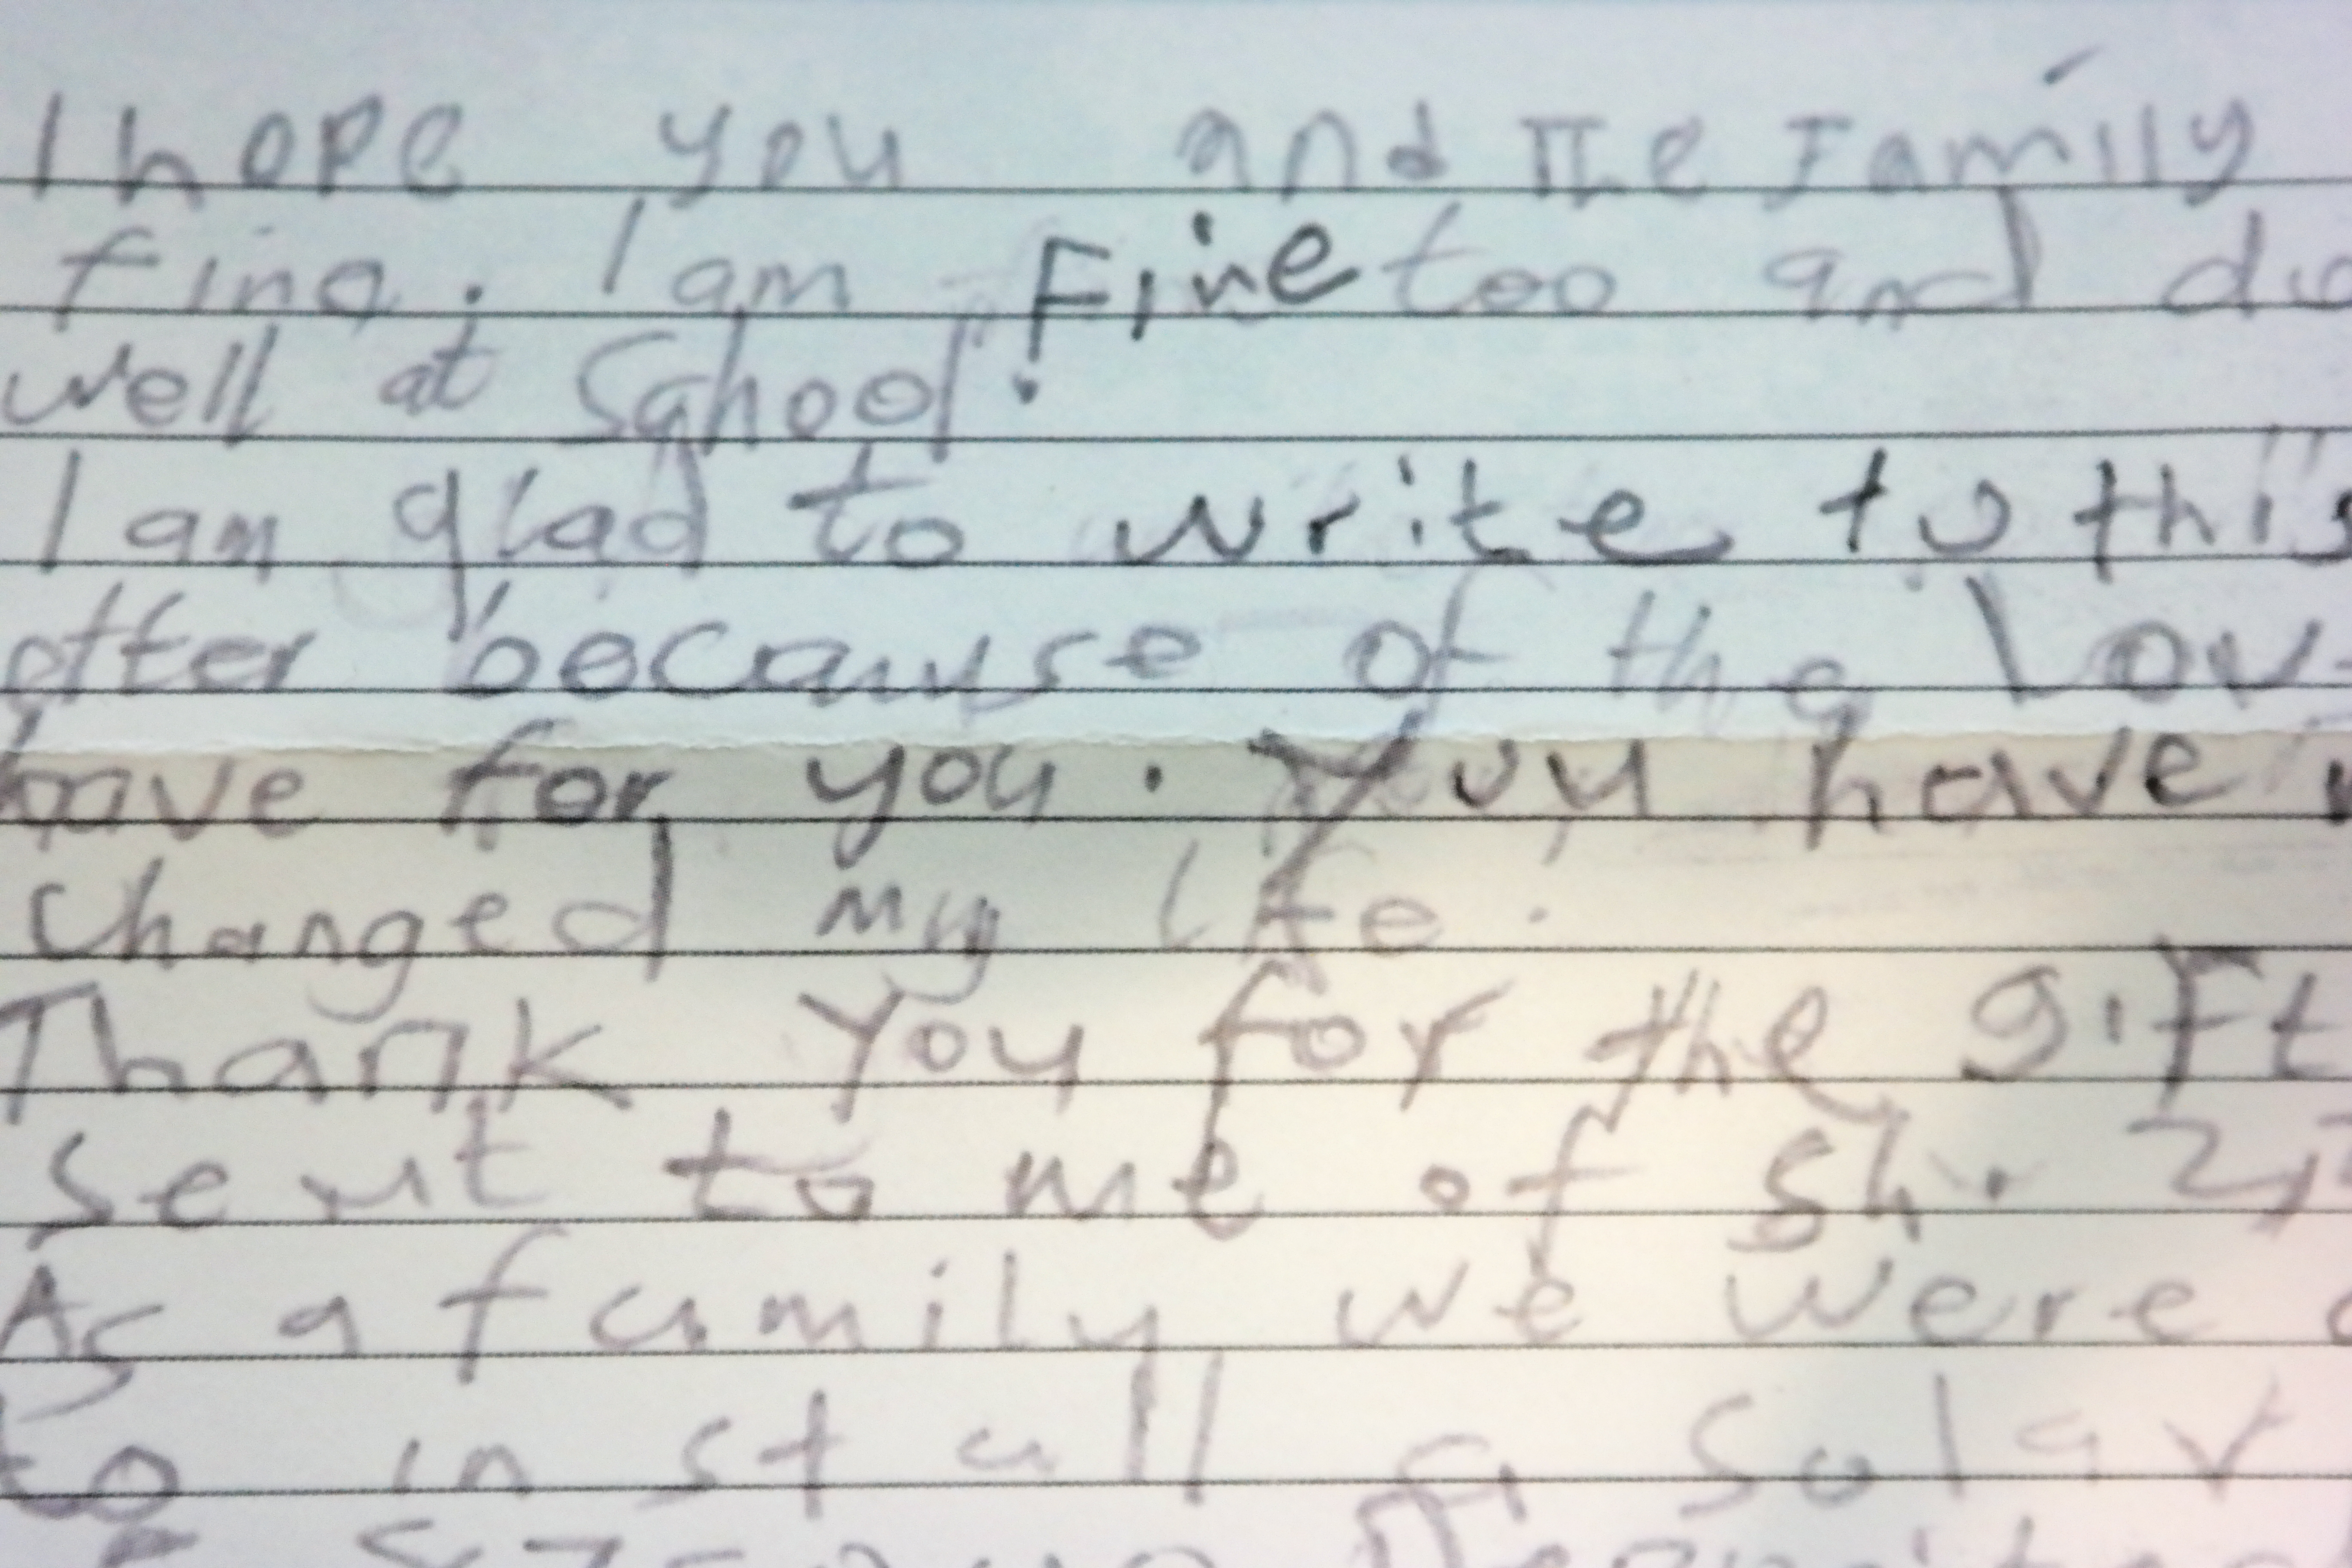 I hope you and the Family
fine. I am Fine too and do
well at School.
I am glad to write to this
etter because of the Lov
have for you. You have
changed my life.
Thank You for the gift
sent to me of Sh. 2,
As a family we were
to install a Solar